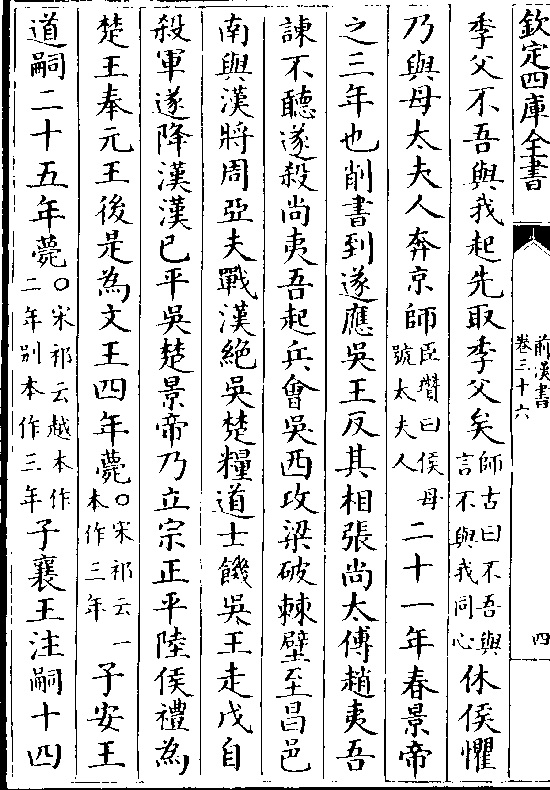 欽定四庫全書
前漢書
卷三十六
四
季父不吾與我起先取季父矣師古曰不吾與言不與我同心休侯懼
乃與母太夫人奔京師臣瓚曰侯母號太夫人二十一年春景帝
之三年也削書到遂應吳王反其相張尚太傅趙夷吾
諫不聽遂殺尚夷吾起兵會吳西攻梁破棘壁至昌邑
南與漢將周亞夫戰漢絕吳楚糧道士饑吳王走戊自
殺軍遂降漢漢已平吳楚景帝乃立宗正平陸侯禮為
楚王奉元王後是為文王四年薨○宋祁云一本作三年子安王
道嗣二十五年薨○宋祁云越本作二年别本作三年子襄王注嗣十四